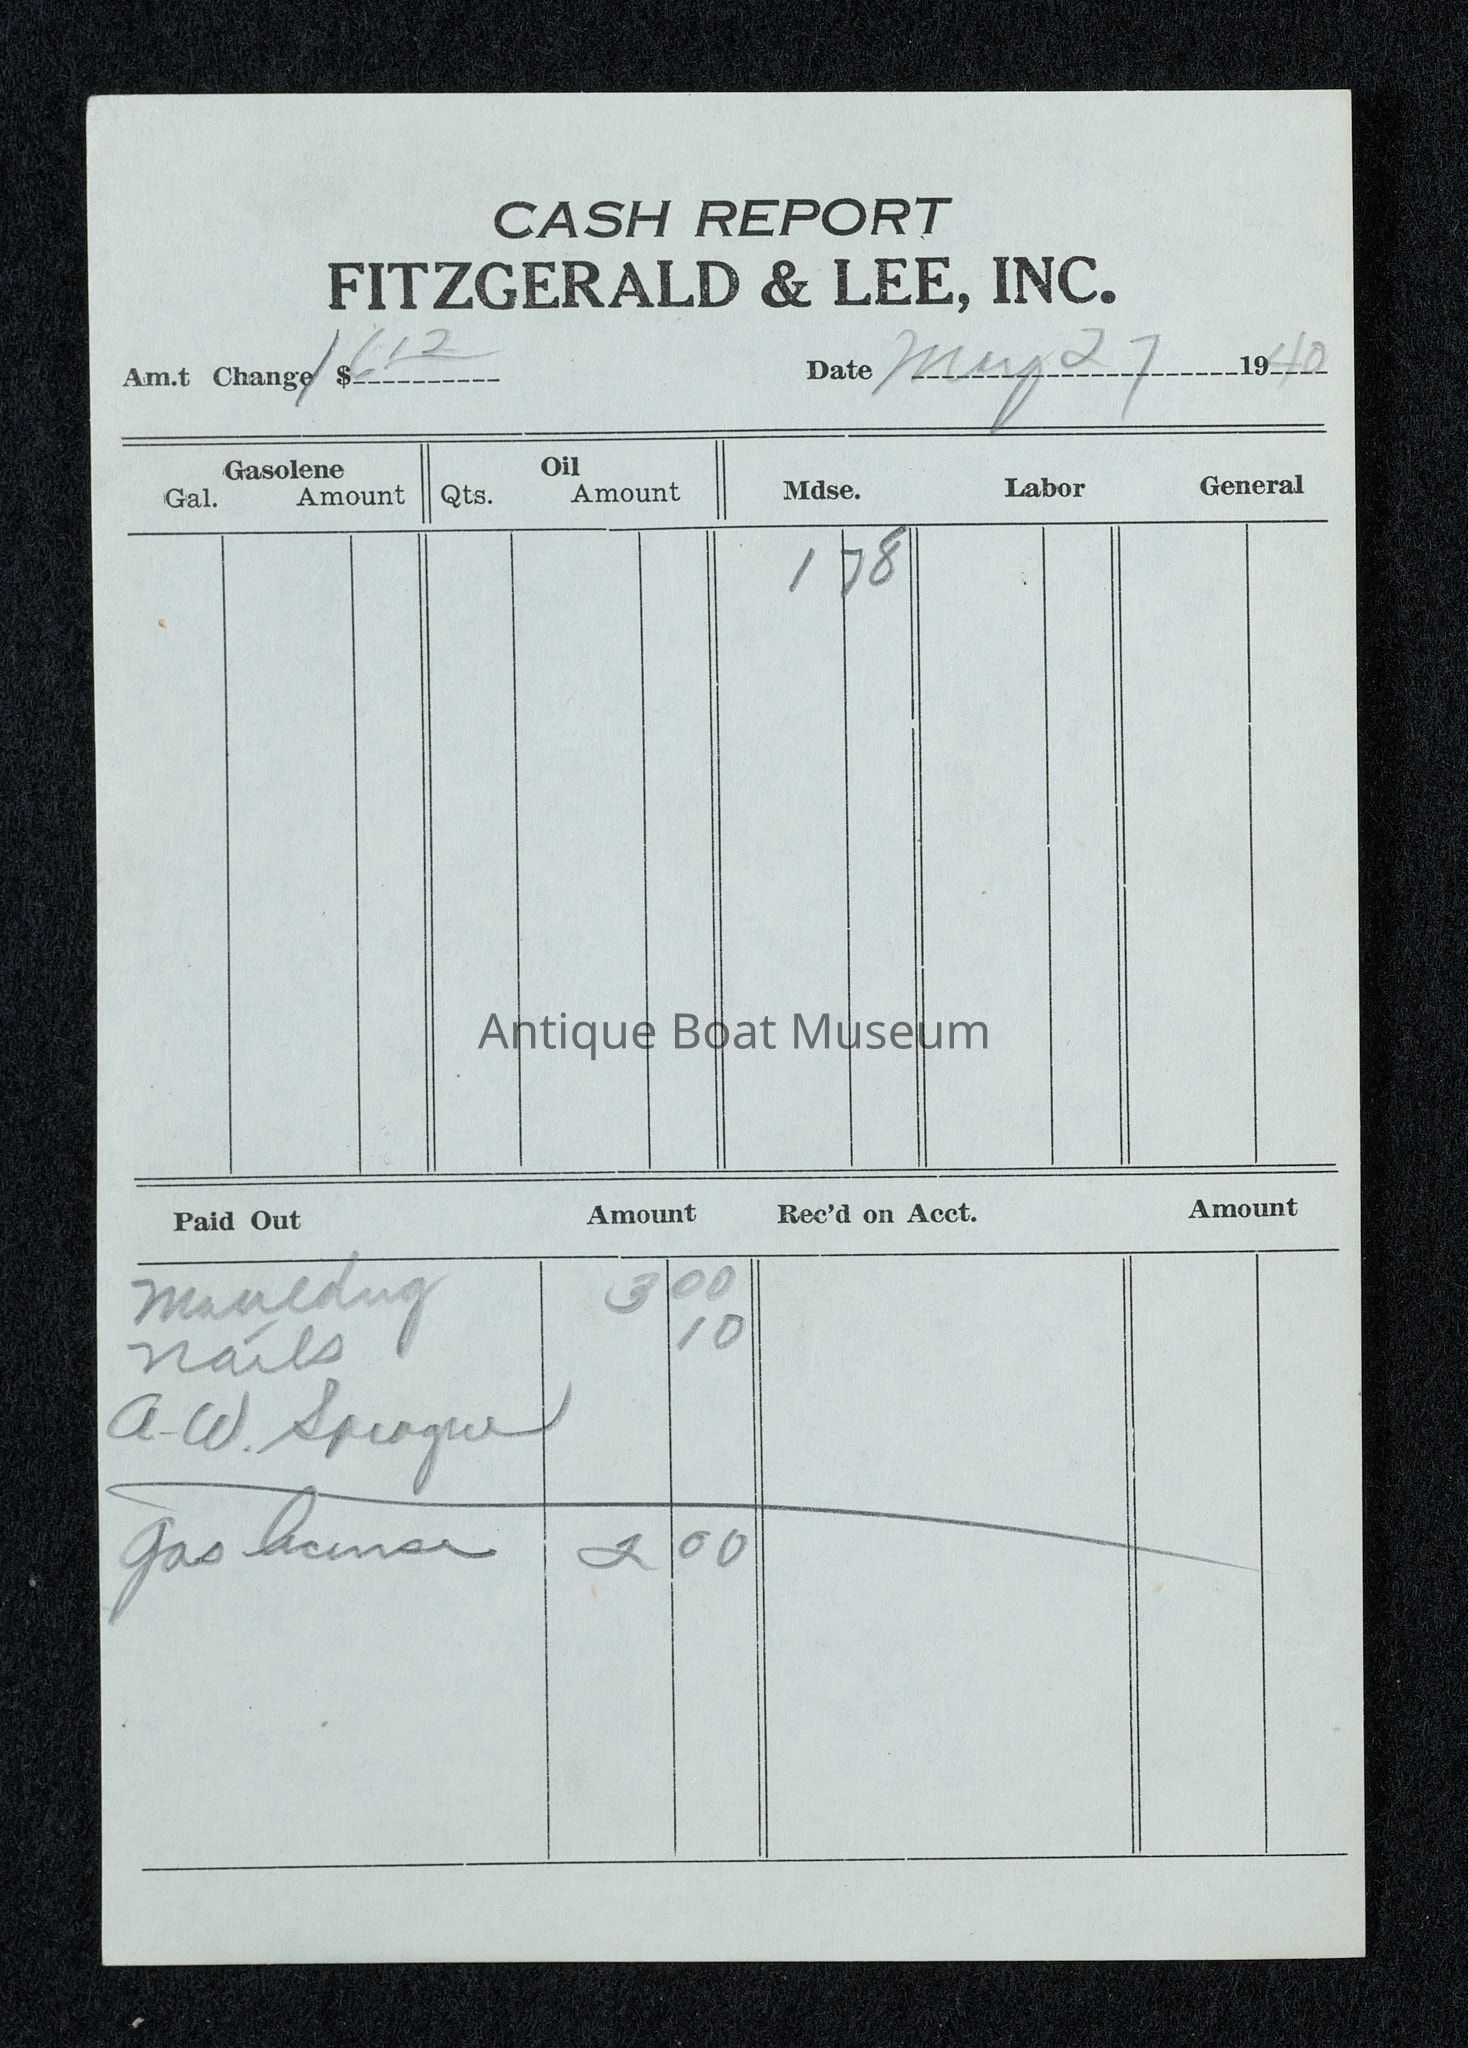 CASH REPORT
FITZGERALD & LEE, INC.
Am.t Change $ 16 12 Date May 27 1940
Gasolene Oil
Gal. Amount Qts. Amount Mdse. Labor General
1 78
Antique Boat Museum
Paid Out Amount Rec'd on Acct. Amount
Moulding 3 00
Nails 10
A. W. Sprague
Gas license 2 00